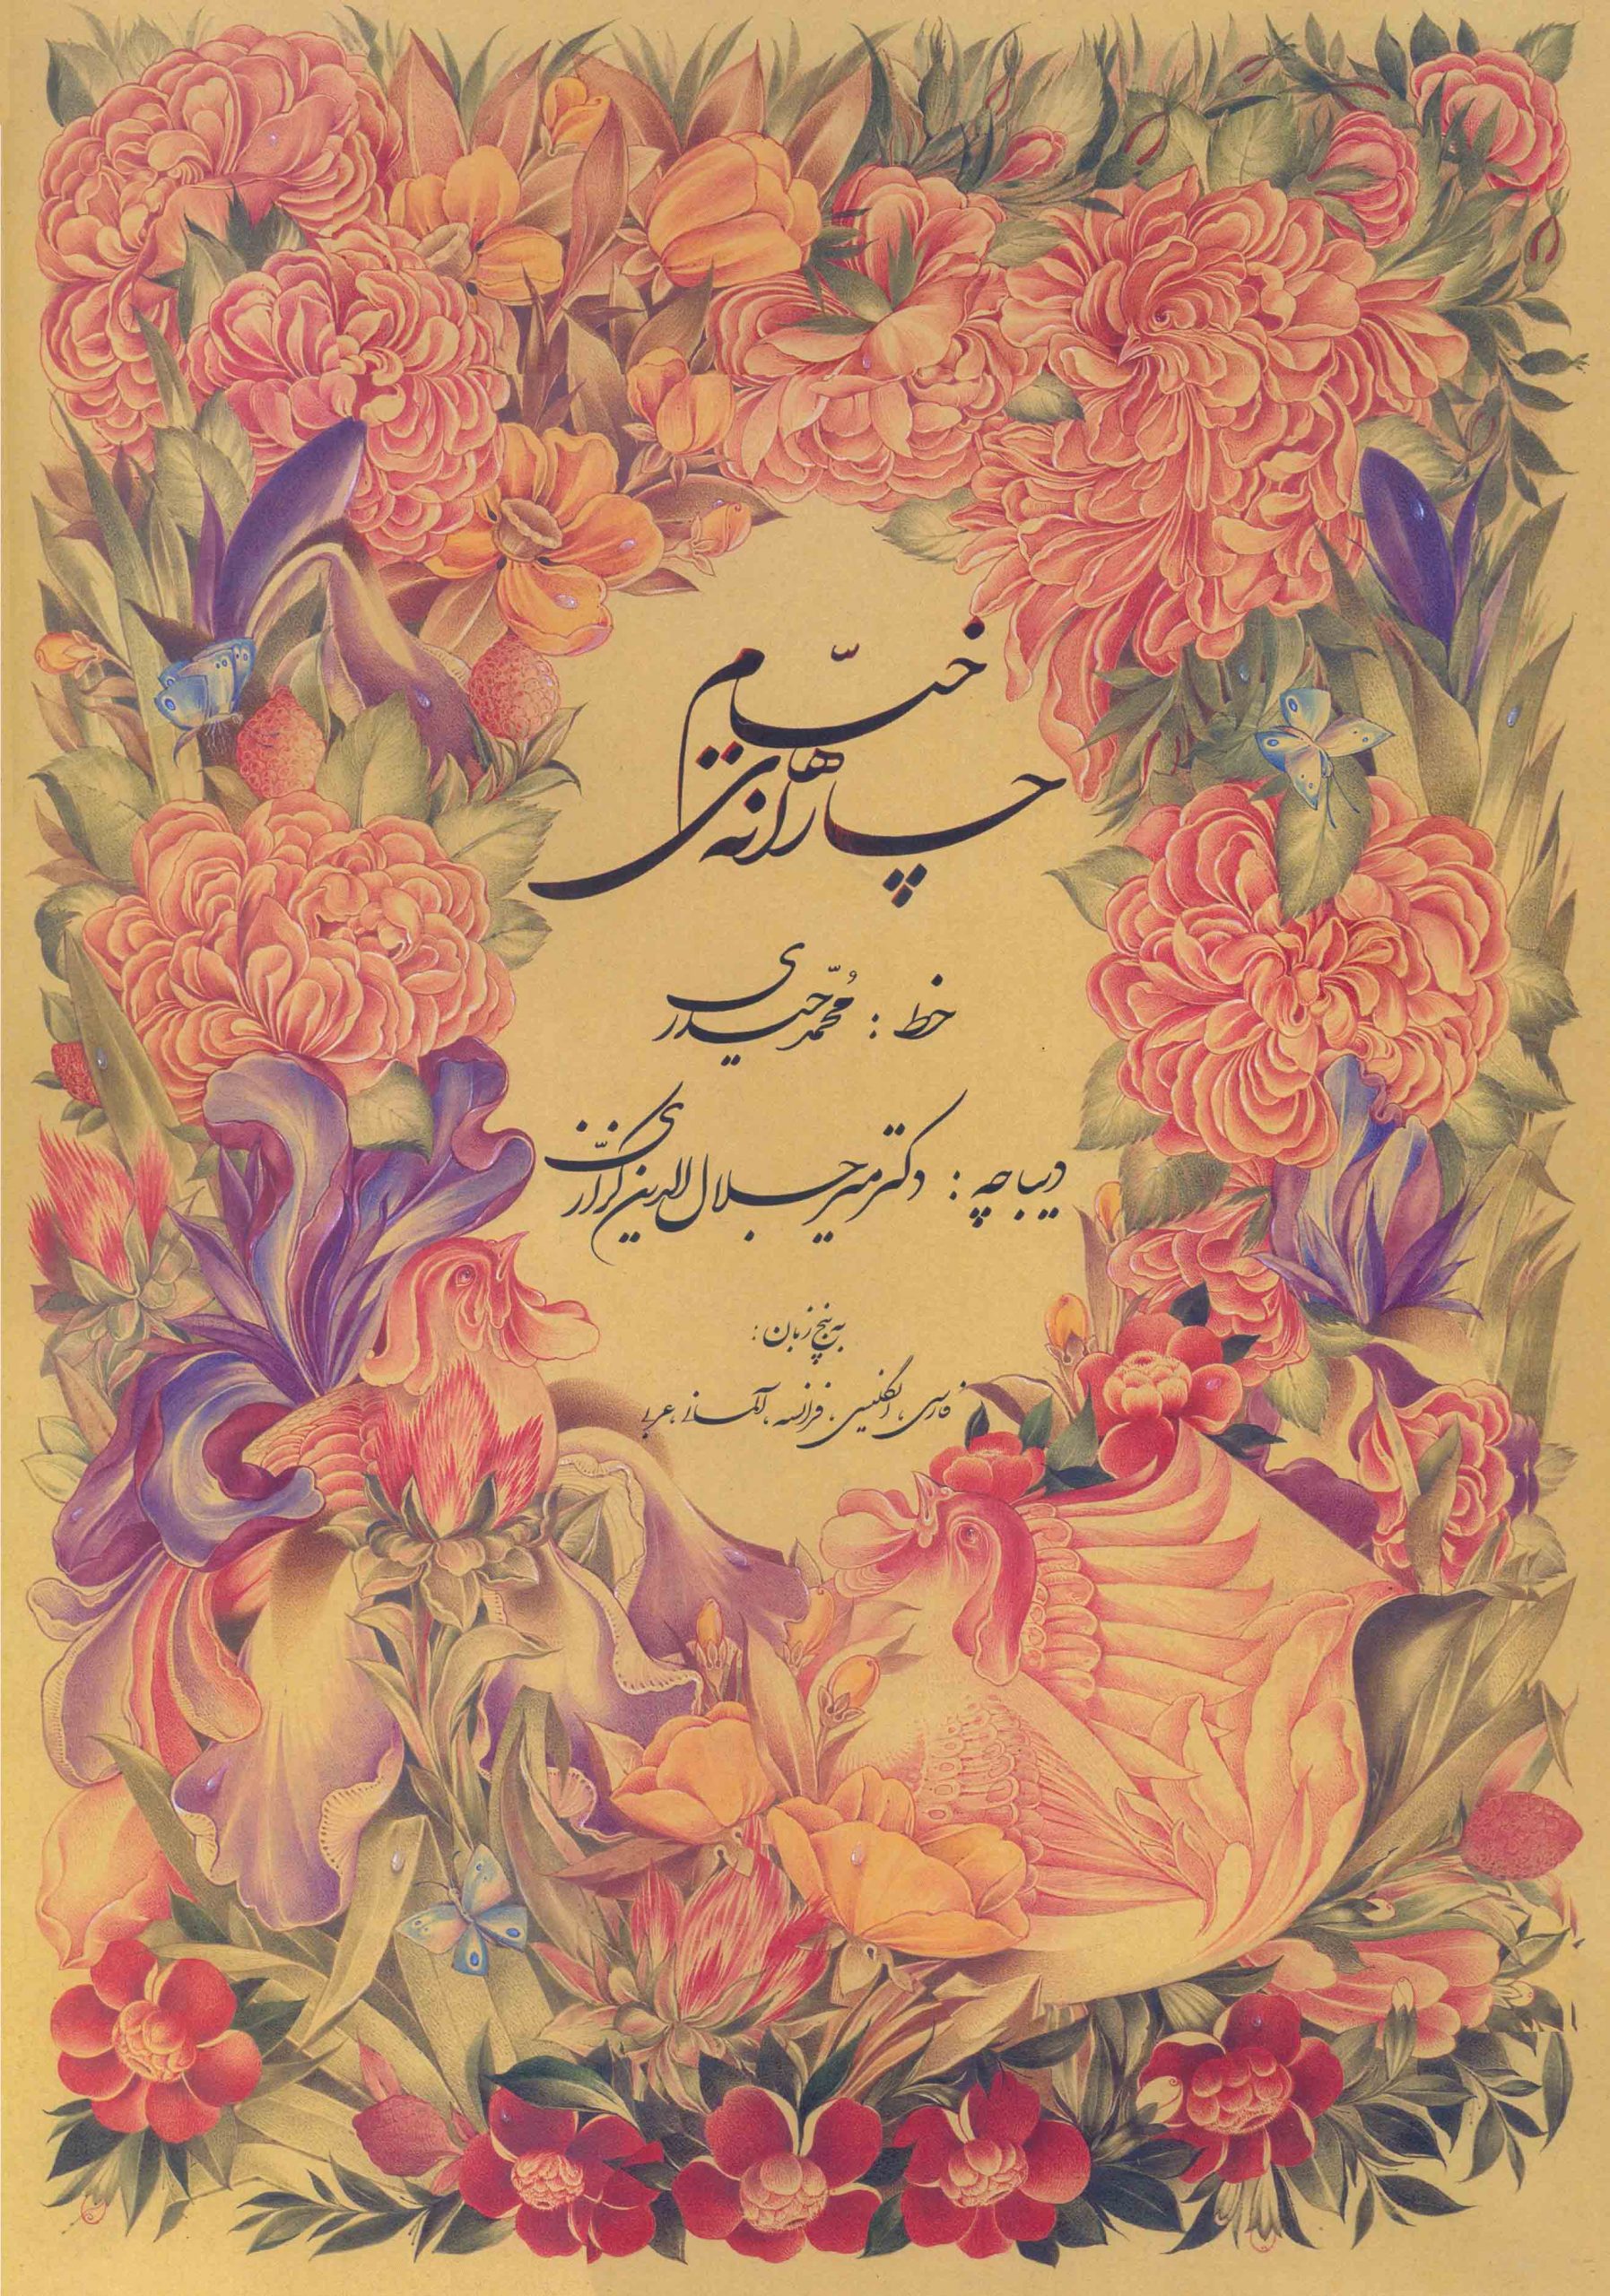 چارانه‌های خیّام
خط : مُحمّد حیدری
دیباچه : دکتر میر جلال الدین کزّازی
به پنج زبان :
فارسی، انگلیسی، فرانسه، آلمانی، عربی